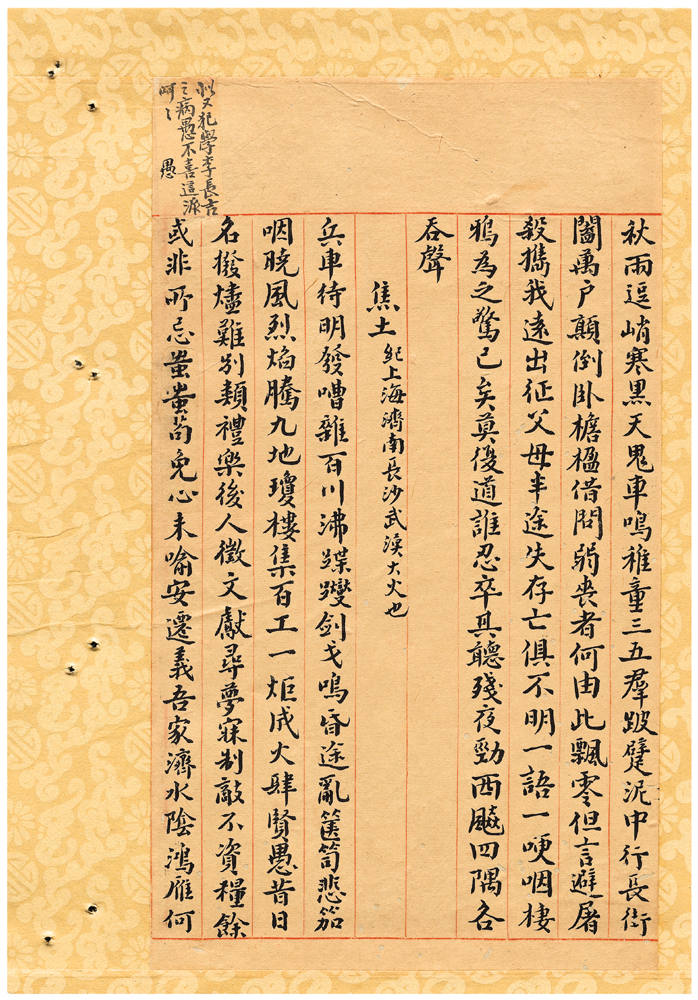 秋雨逗峭寒黑天鬼車鳴稚童三五羣跛躄泥中行長街
闔萬户顛倒卧檐楹借問弱喪者何由此飄零但言避屠
殺攜我遠出征父母半途失存亡俱不明一語一哽咽棲
鴉為之驚已矣莫復道誰忍卒其聽殘夜勁西飈四隅各
吞聲
焦土 紀上海濟南長沙武漢大火也
兵車待明發嘈雜百川沸蹀躞劍戈鳴昏途亂篋笥悲笳
咽曉風烈焰騰九地瓊樓集百工一炬成火肆賢愚昔日
名撥燼難别類禮樂後人徵文獻尋夢寐制敵不資糧餘
或非所忌蚩蚩苟免心未喻安遷義吾家濟水陰鴻雁何
似又犯學李長吉
之病愚不喜這派
呵呵 愚